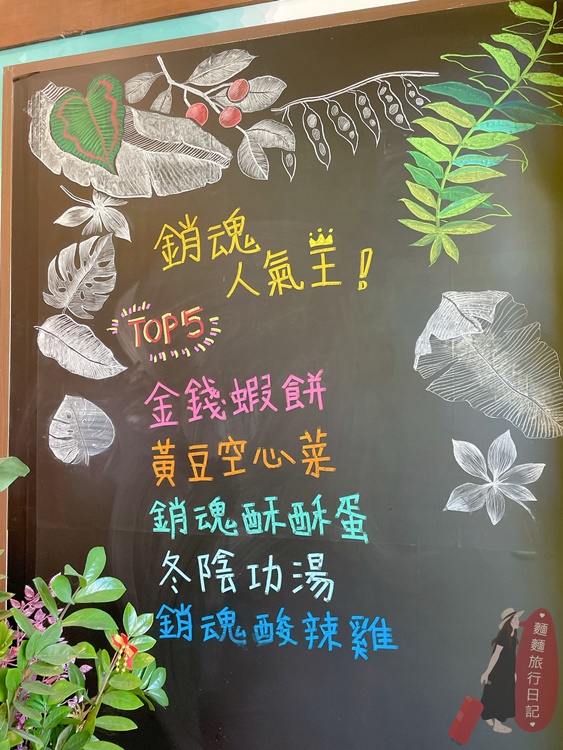 銷魂
人氣王!
TOP5
金錢蝦餅
黃豆空心菜
銷魂酥酥蛋
冬陰功湯
銷魂酸辣雞
麵麵旅行日記